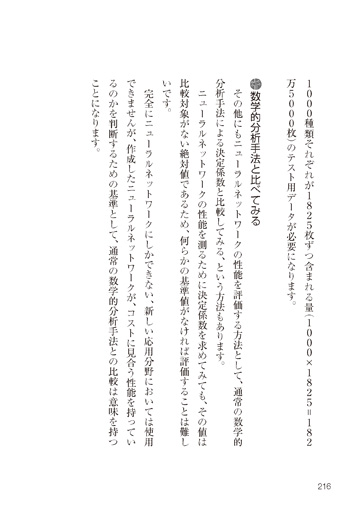 1000種類それぞれが1825枚ずつ含まれる量(1000×1825=182
万5000枚)のテスト用データが必要になります。
数学的分析手法と比べてみる
その他にもニューラルネットワークの性能を評価する方法として、通常の数学的
分析手法による決定係数と比較してみる、という方法もあります。
ニューラルネットワークの性能を測るために決定係数を求めてみても、その値は
比較対象がない絶対値であるため、何らかの基準値がなければ評価することは難し
いです。
完全にニューラルネットワークにしかできない、新しい応用分野においては使用
できませんが、作成したニューラルネットワークが、コストに見合う性能を持ってい
るのかを判断するための基準として、通常の数学的分析手法との比較は意味を持つ
ことになります。
216